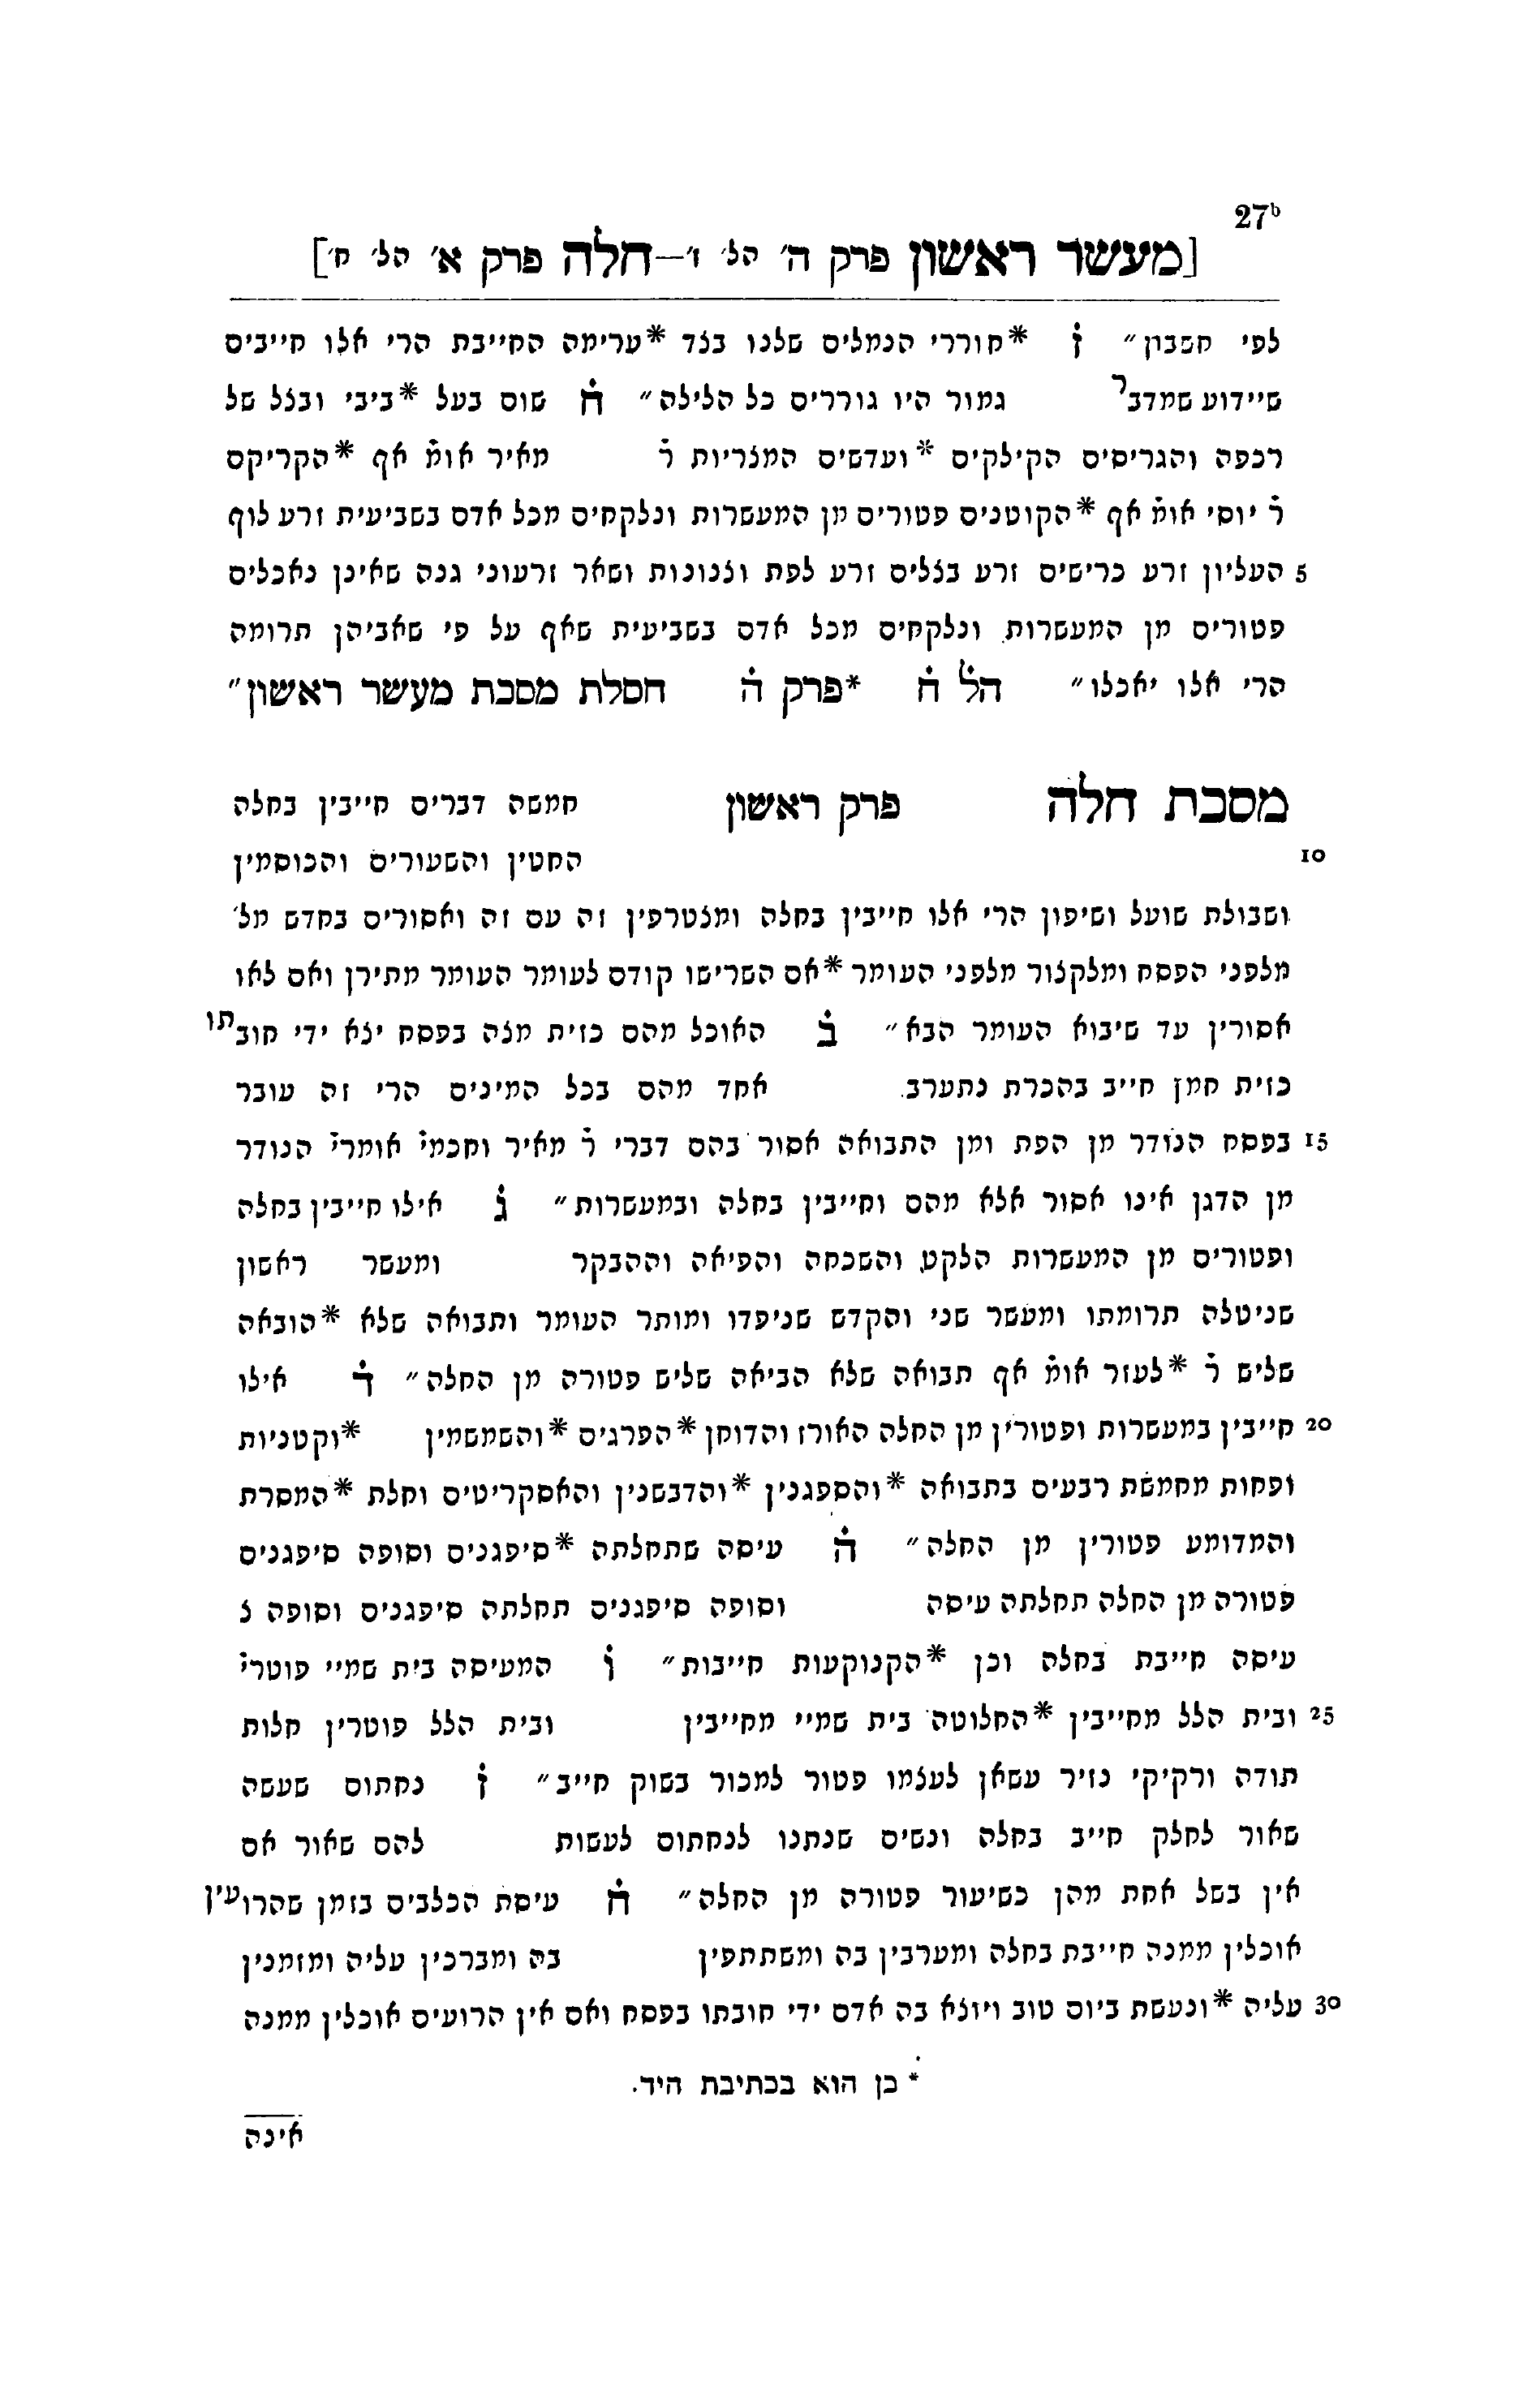 27ᵇ
[מעשר ראשון פרק ה׳ הל׳ ו׳—חלה פרק א׳ הל׳ ח׳]
לפי חשבון״ ז֗ *חוררי הנמלים שלנו בצד *ערימה החייבת הרי אלו חייבים
שיידוע שמדבר גמור היו גוררים כל הלילה״ ח֗ שום בעל *ביבי ובצל של
רכפה והגריסים הקילקים *ועדשים המצריות ר֗ מאיר אומ֗ אף *הקריקס
ר֗ יוסי אומ֗ אף *הקוטנים פטורים מן המעשרות ונלקחים מכל אדם בשביעית זרע לוף
5 העליון זרע כרישים זרע בצלים זרע לפת וצנונות ושאר זרעוני גנה שאינן נאכלים
פטורים מן המעשרות ונלקחים מכל אדם בשביעית שאף על פי שאביהן תרומה
הרי אלו יאכלו״ הל֗ ח֗ *פרק ה֗ חסלת מסכת מעשר ראשון״
מסכת חלה פרק ראשון חמשה דברים חייבין בחלה
10 החטין והשעורים והכוסמין
ושבולת שועל ושיפון הרי אלו חייבין בחלה ומצטרפין זה עם זה ואסורים בחדש מל׳
מלפני הפסח ומלקצור מלפני העומר *אם השרישו קודם לעומר העומר מתירן ואם לאו
אסורין עד שיבוא העומר הבא״ ב֗ האוכל מהם כזית מצה בפסח יצא ידי חובתו
כזית חמץ חייב בהכרת נתערב אחד מהם בכל המינים הרי זה עובר
15 בפסח הנודר מן הפת ומן התבואה אסור בהם דברי ר֗ מאיר וחכמי֗ אומרי֗ הנודר
מן הדגן אינו אסור אלא מהם וחייבין בחלה ובמעשרות״ ג֗ אילו חייבין בחלה
ופטורים מן המעשרות הלקט והשכחה והפיאה וההבקר ומעשר ראשון
שניטלה תרומתו ומעשר שני והקדש שניפדו ומותר העומר ותבואה שלא *הובאה
שליש ר֗ *לעזר אומ֗ אף תבואה שלא הביאה שליש פטורה מן החלה״ ד֗ אילו
20 חייבין במעשרות ופטורין מן החלה האורז והדוחן *הפרגים *והשמשמין *וקטניות
ופחות מחמשת רבעים בתבואה *והספגנין *והדבשנין והאסקריטים וחלת *המסרת
והמדומע פטורין מן החלה״ ה֗ עיסה שתחלתה *סיפגנים וסופה סיפגנים
פטורה מן החלה תחלתה עיסה וסופה סיפגנים תחלתה סיפגנים וסופה צ
עיסה חייבת בחלה וכן *הקנוקעות חייבות״ ו֗ המעיסה בית שמיי פוטרי֗
25 ובית הלל מחייבין *החלוטה בית שמיי מחייבין ובית הלל פוטרין חלות
תודה ורקיקי נזיר עשאן לעצמו פטור למכור בשוק חייב״ ז֗ נחתום שעשה
שאור לחלק חייב בחלה ונשים שנתנו לנחתום לעשות להם שאור אם
אין בשל אחת מהן כשיעור פטורה מן החלה״ ח֗ עיסת הכלבים בזמן שהרועין
אוכלין ממנה חייבת בחלה ומערבין בה ומשתתפין בה ומברכין עליה ומזמנין
30 עליה *ונעשת ביום טוב ויוצא בה אדם ידי חובתו בפסח ואם אין הרועים אוכלין ממנה
* כן הוא בכתיבת היד.
אינה